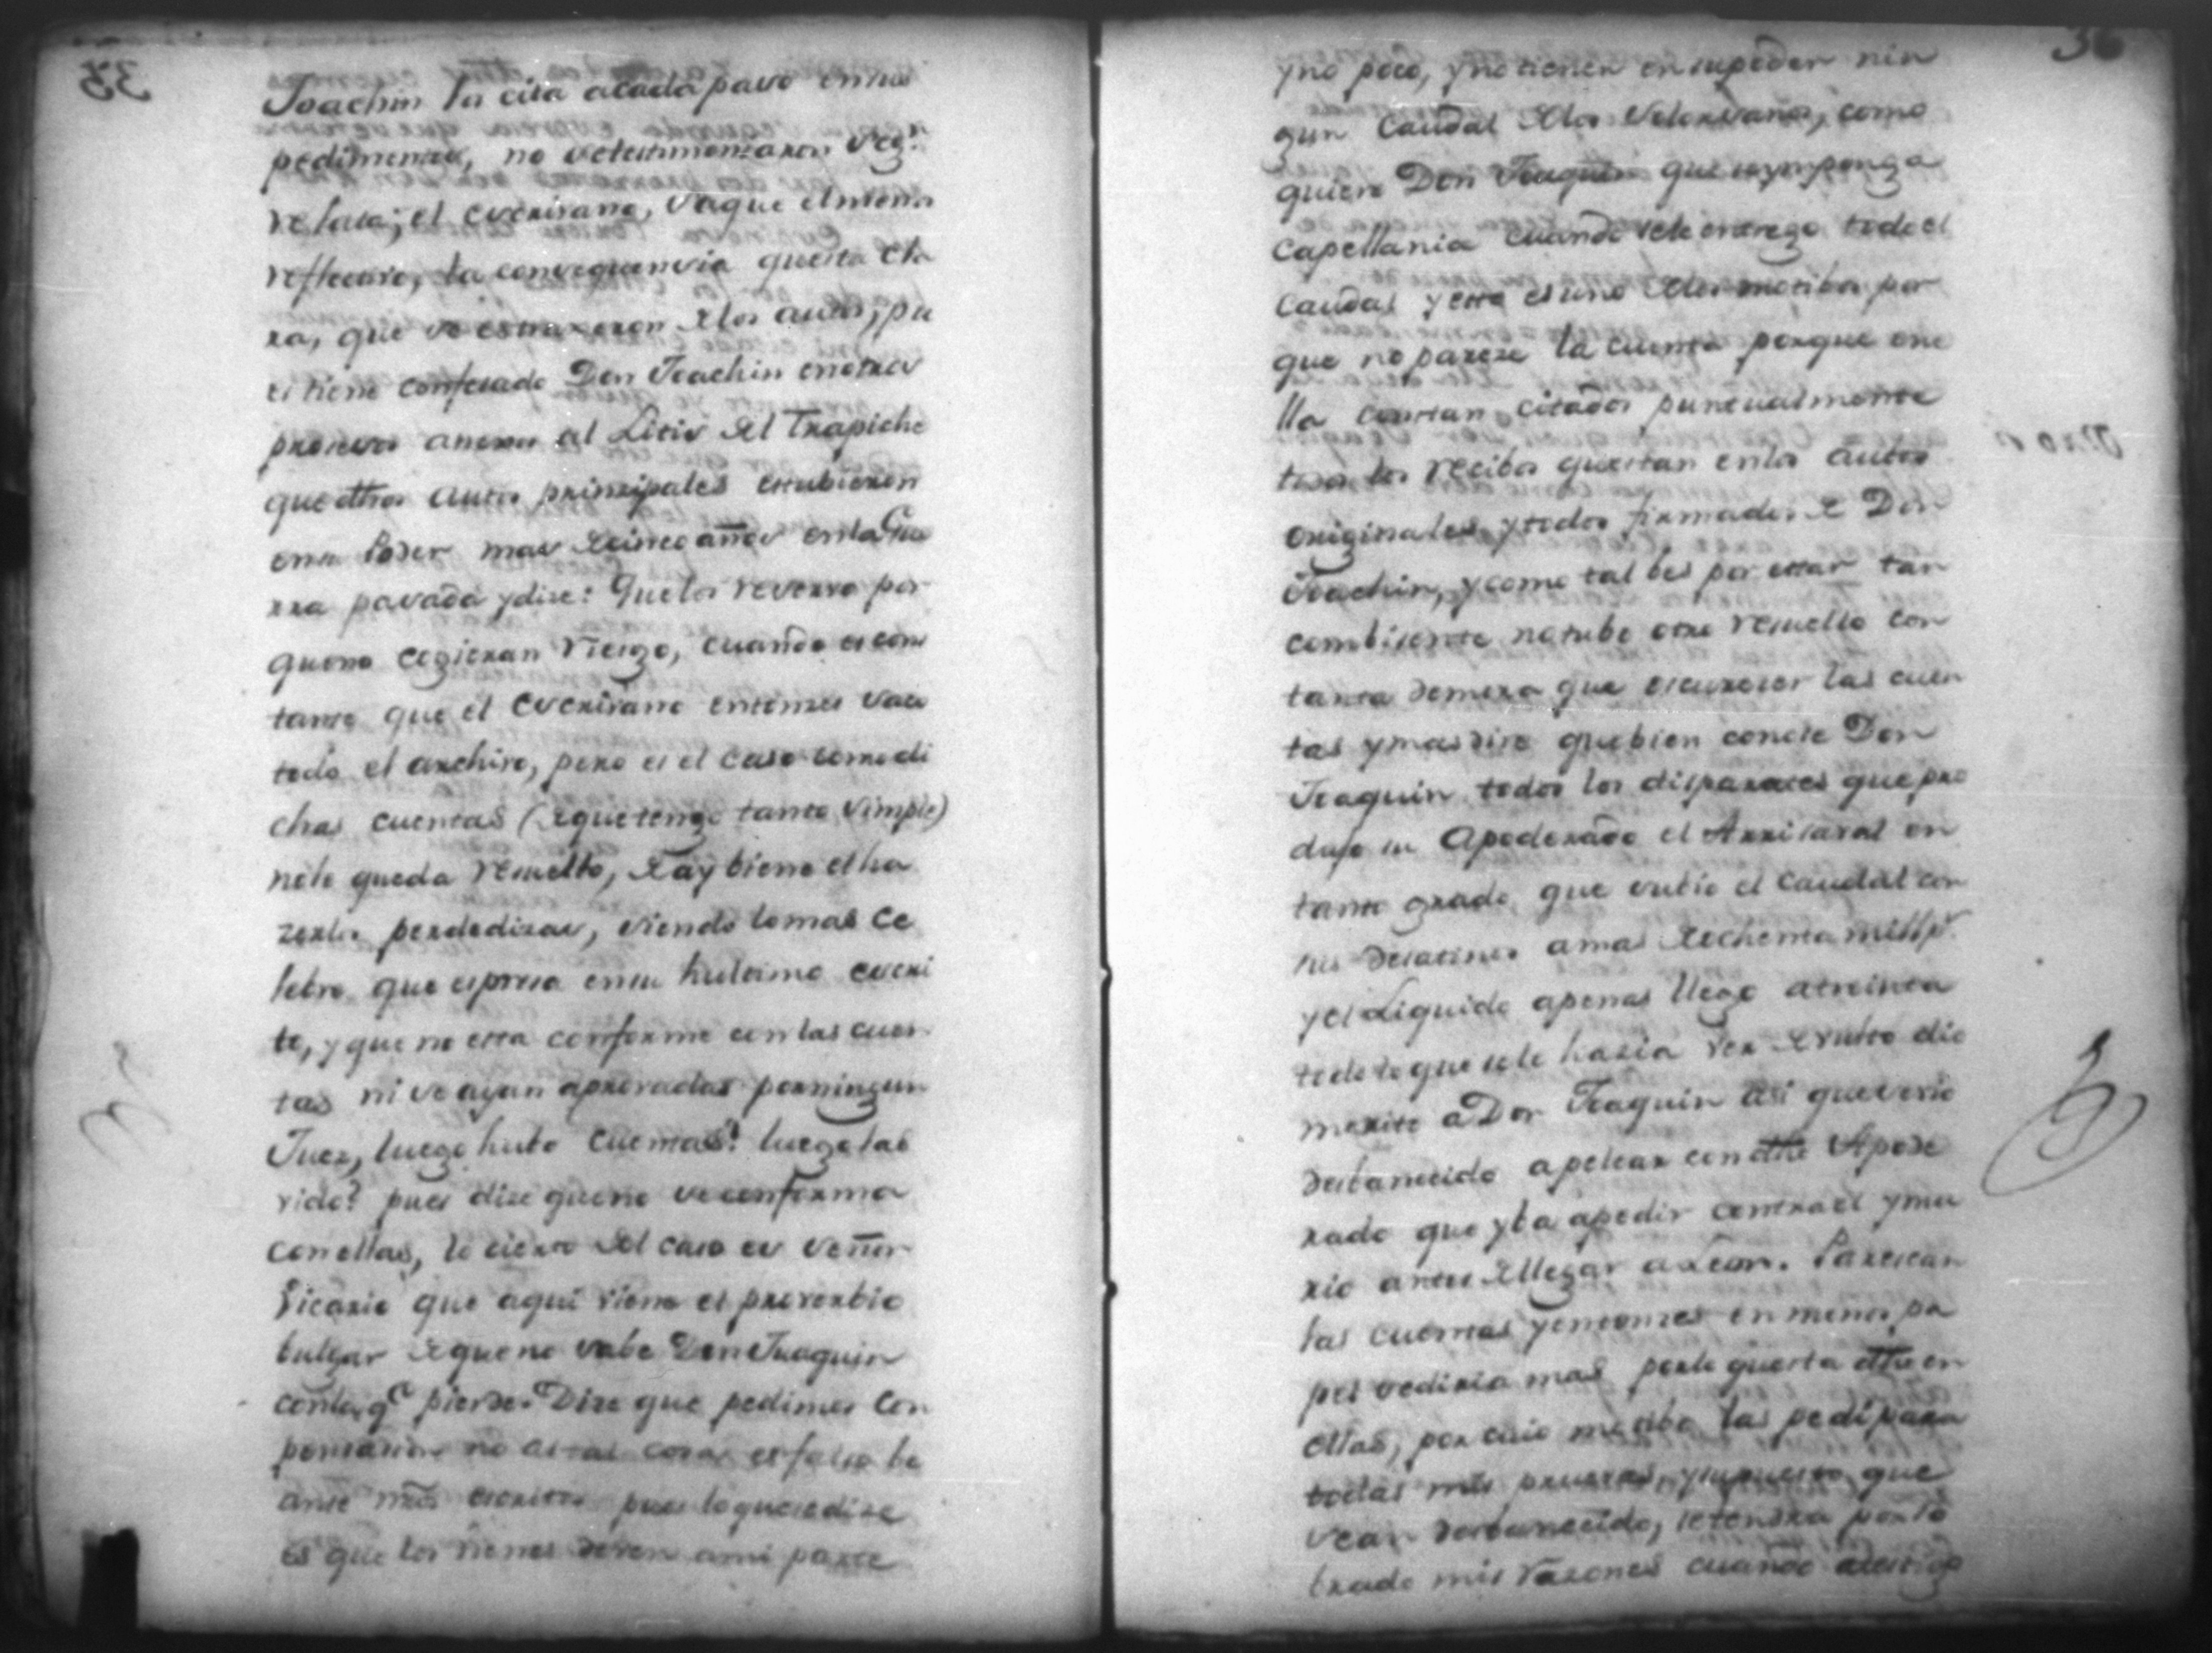 35
Joachin la cita acada paso en sus
pedimentos, no se testimoniaron seg.n
relata; el escrivano, saque el mismo
reflecsro, la consequensia questa cla
ra, que se estraxeron de los autos, pu
es tiene confesado Don Joachin en otras
proseros anexos al Litis del Trapiche
que dhos autos principales estubieron
en su Poder mas de cinco años en la Gue
rra pasada y dise: Que los reserro por
que no cogieran riesgo, cuando es cons
tante que el escrivano entonzes saco
todo el archivo, pero es el caso como di
chas cuentas (de que tengo tanto simple)
no le queda resuello, de ay biene el ha
zerlas perdedizas, siendo lo mas ce
lebre que espresa en su hultimo escri
to, y que no esta conforme con las cuen
tas ni se ayan aprovadas por ningun
Juez, luego hubo cuentas? luego las
vido? pues dise que no se conforma
con ellas, lo cierto del caso es señor
Vicario que aqui viene el proverbio
bulgar de que no sabe Don Juaquin
con la q.e pierde. Dise que pedimos con
ponsision no ai tal cosa, es falso be
anse mis escritos pues lo que se dize
es que los vienes deven a mi parte
36
y no poco, y no tienen en su poder nin
gun Caudal de los Veloxvanos, como
quiere Don Joaquin que se ymponga
Capellania cuando se le entrego todo el
Caudal y este es uno de los motibos por
que no pareze la cuenta porque en e
lla constan citados puntualmente
todos los recibos que estan en los autos
originales y todos firmados de Don
Joachin, y como tal bes por estar tan
combisente no tubo otro resuello con
tanta demora que escurecer las cuen
tas y mas dise que bien conose Don
Joaquin todos los disparates que pro
dujo su Apoderado el Arrisaval en
tanto grado que subio el Caudal con
sus desatinos a mas de ochenta mill p.s
y el Liquido apenas llego a treinta
todo lo que se le hazia ver de vulto dio
merito a Don Joaquin asi que se vio
desbanecido a pelear con dho Apode
rado que yba a pedir contra el y mu
rio antes de llegar a Leon. Parescan
las cuentas y entonzes en menos pa
pel sediria mas por lo questa dho en
ellas, por cuio motibo las pedi para
todas mis pruevas, y supuesto que
sean desbanecido, se tendra por lo
brado mis razones cuando